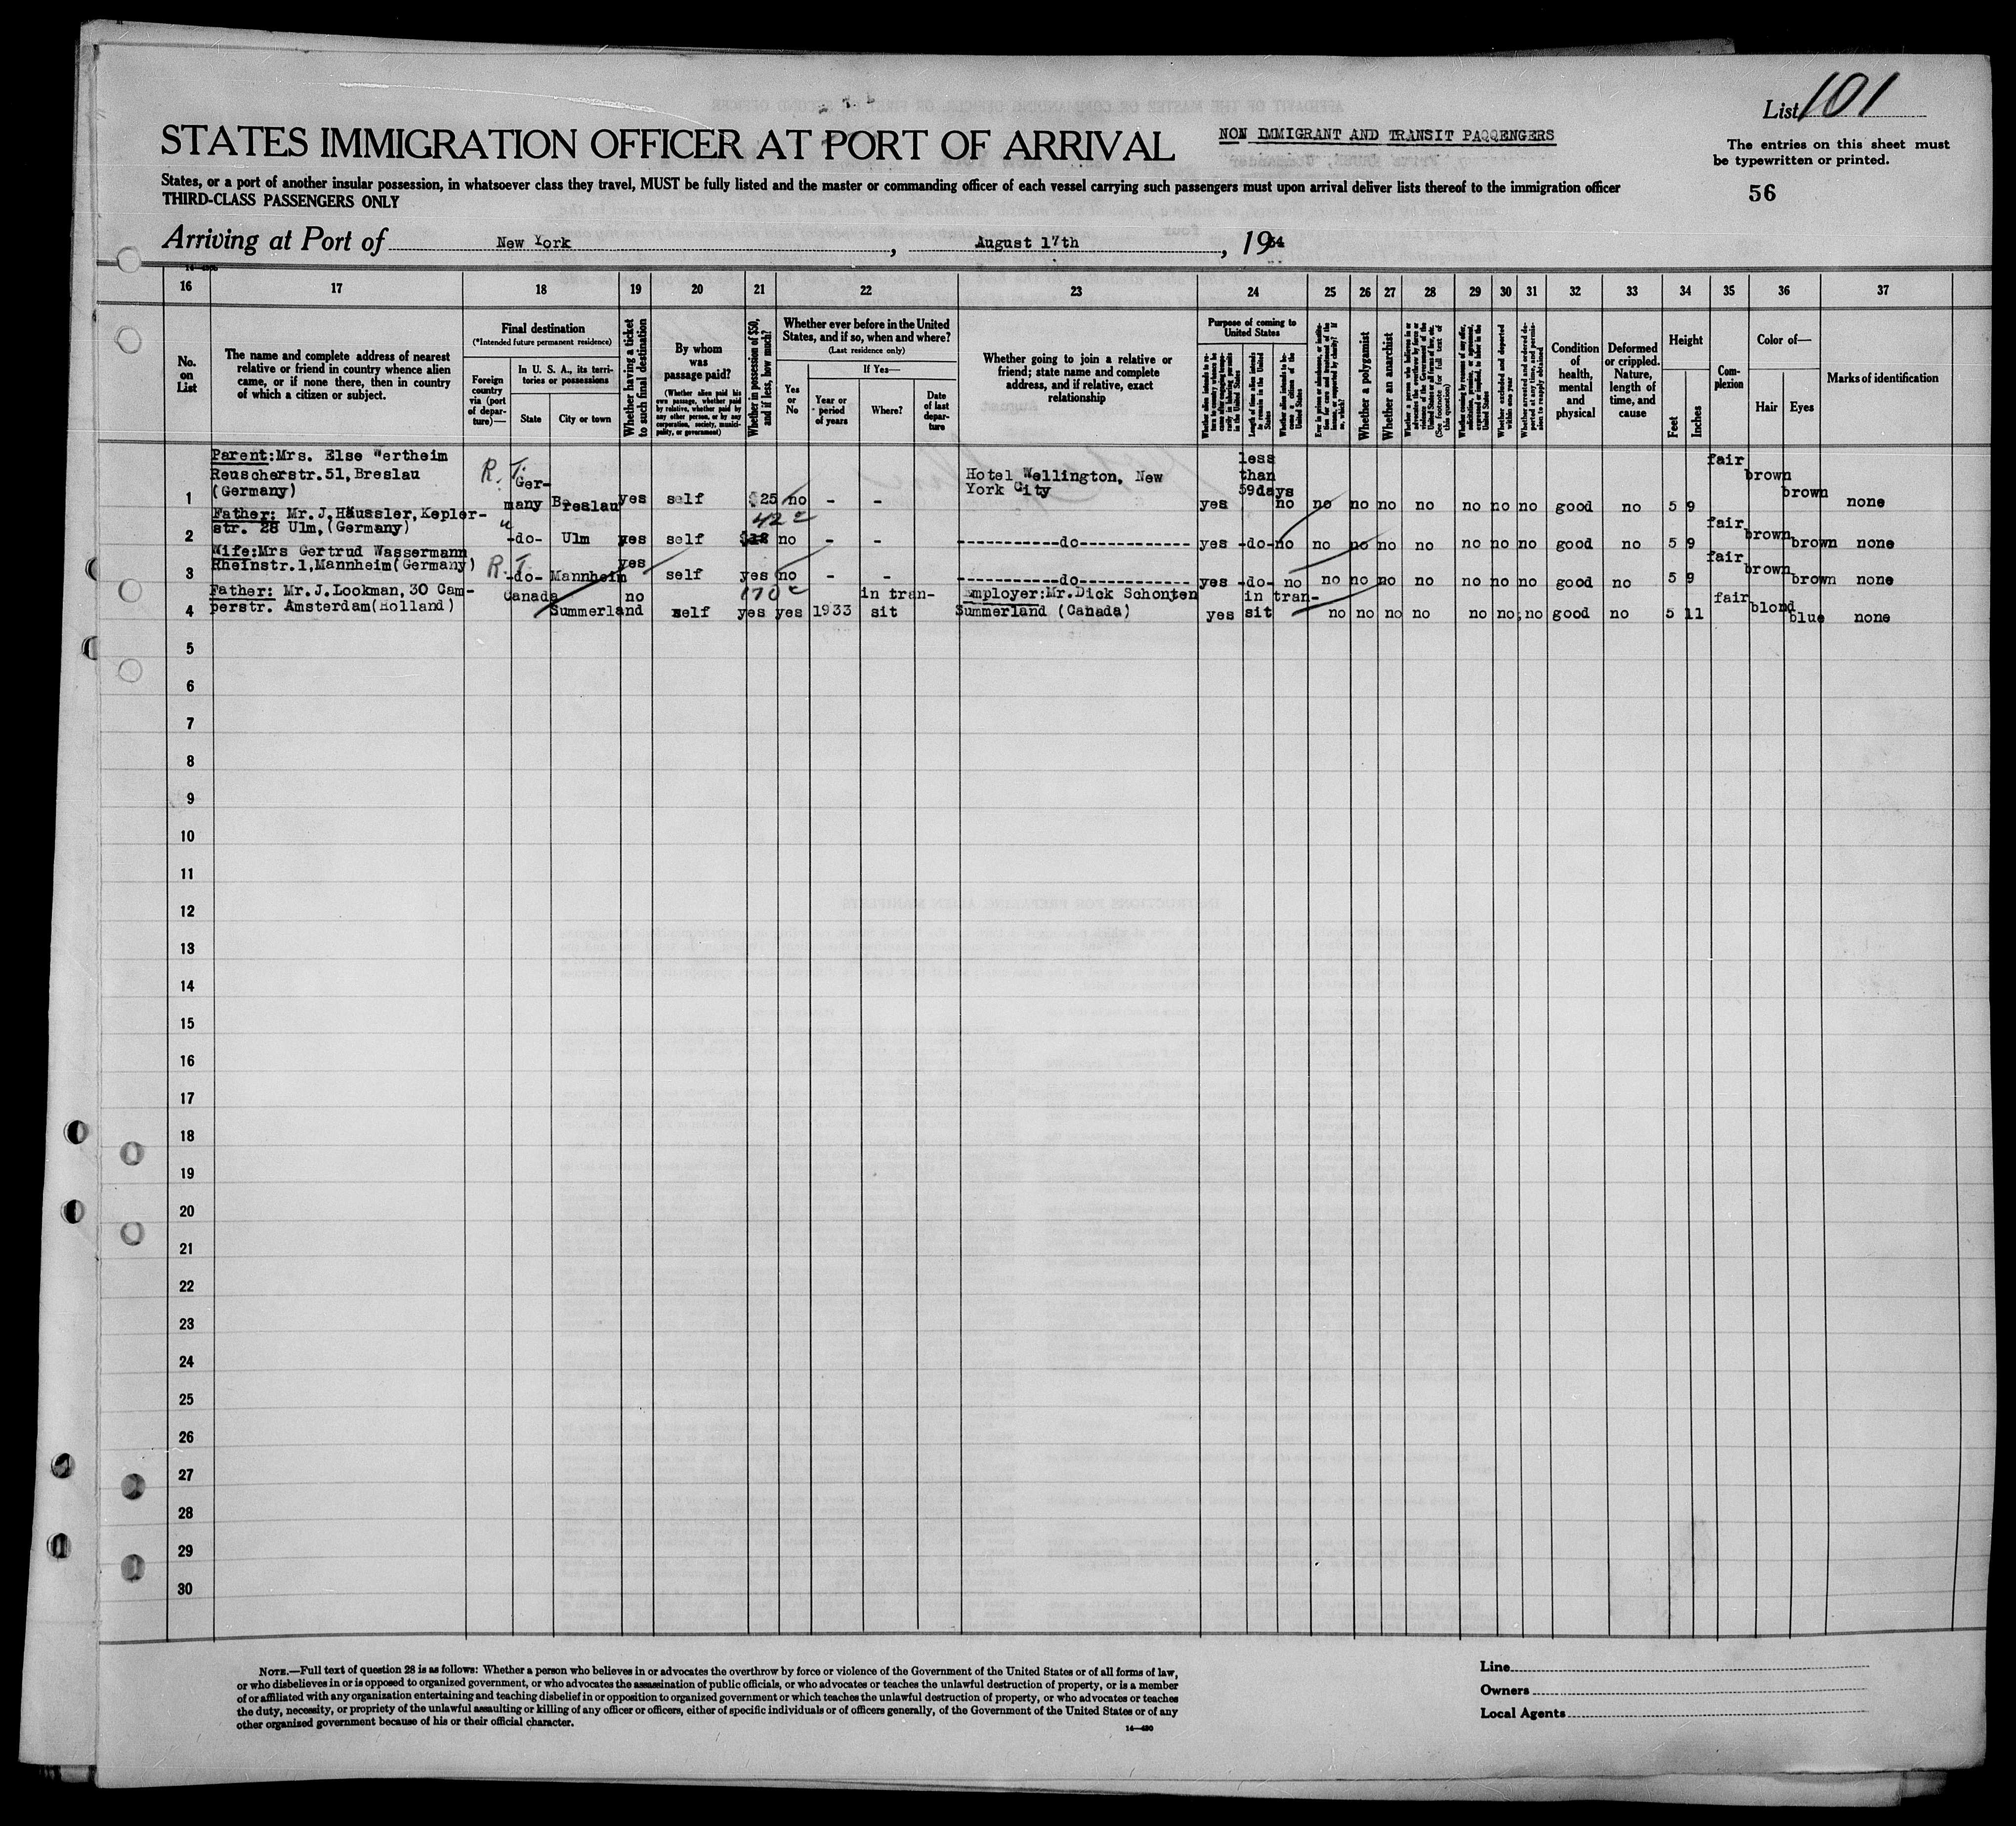 List 101
STATES IMMIGRATION OFFICER AT PORT OF ARRIVAL
NON IMMIGRANT AND TRANSIT PAQQENGERS
The entries on this sheet must
be typewritten or printed.
56
States, or a port of another insular possession, in whatsoever class they travel, MUST be fully listed and the master or commanding officer of each vessel carrying such passengers must upon arrival deliver lists thereof to the immigration officer
THIRD-CLASS PASSENGERS ONLY
Arriving at Port of New York, August 17th, 1934
16 17 18 19 20 21 22 23 24 25 26 27 28 29 30 31 32 33 34 35 36 37
No.
on
List
The name and complete address of nearest
relative or friend in country whence alien
came, or if none there, then in country
of which a citizen or subject.
Final destination
(*Intended future permanent residence)
Foreign
country
via (port
of depar-
ture)—
In U. S. A., its terri-
tories or possessions
State
City or town
Whether having a ticket
to such final destination
By whom
was
passage paid?
(Whether alien paid his
own passage, whether paid
by relative, whether paid by
any other person, or by any
corporation, society, munici-
pality, or government)
Whether in possession of $50,
and if less, how much?
Whether ever before in the United
States, and if so, when and where?
(Last residence only)
Yes
or
No
If Yes—
Year or
period
of years
Where?
Date
of last
depar-
ture
Whether going to join a relative or
friend; state name and complete
address, and if relative, exact
relationship
Purpose of coming to
United States
Length of time alien intends
to remain in the United
States
Whether alien intends to be-
come a citizen of the
United States
Whether a polygamist
Whether an anarchist
(See footnote for full text of
this question)
Whether excluded and deported
within one year
Whether arrested and ordered de-
ported at any time, and permis-
sion to reapply obtained
Condition
of
health,
mental
and
physical
Deformed
or crippled.
Nature,
length of
time, and
cause
Height
Feet
Inches
Com-
plexion
Color of—
Hair
Eyes
Marks of identification
Parent:Mrs. Else Wertheim
Reuscherstr.51,Breslau
(Germany)
1 R. T. Ger-
many Breslau yes self $25 no - - Hotel Wellington, New
York City
yes less
than
59days no no no no no no no no good no 5 9 fair brown brown none
Father: Mr.J.Häussler,Kepler-
str. 28 Ulm,(Germany)
2 " -do- Ulm yes self 42 no - - -----------do----------- yes -do- no no no no no no no no good no 5 9 fair brown brown none
Wife:Mrs Gertrud Wassermann
Rheinstr.1,Mannheim(Germany)
3 R. T. -do- Mannheim yes self yes no - - -----------do----------- yes -do- no no no no no no no no good no 5 9 fair brown brown none
Father: Mr.J.Lookman,30 Cam-
perstr. Amsterdam(Holland)
4 Canada Summerland no self 170 yes yes 1933 in tran-
sit Employer:Mr.Dick Schonten
Summerland (Canada)
yes in tran-
sit no no no no no no no good no 5 11 fair blond blue none
5
6
7
8
9
10
11
12
13
14
15
16
17
18
19
20
21
22
23
24
25
26
27
28
29
30
NOTE.—Full text of question 28 is as follows: Whether a person who believes in or advocates the overthrow by force or violence of the Government of the United States or of all forms of law,
or who disbelieves in or is opposed to organized government, or who advocates the assassination of public officials, or who advocates or teaches the unlawful destruction of property, or is a member
of or affiliated with any organization entertaining and teaching disbelief in or opposition to organized government or which teaches the unlawful destruction of property, or who advocates or teaches
the duty, necessity, or propriety of the unlawful assaulting or killing of any officer or officers, either of specific individuals or of officers generally, of the Government of the United States or of any
other organized government because of his or their official character.
14—490
Line
Owners
Local Agents